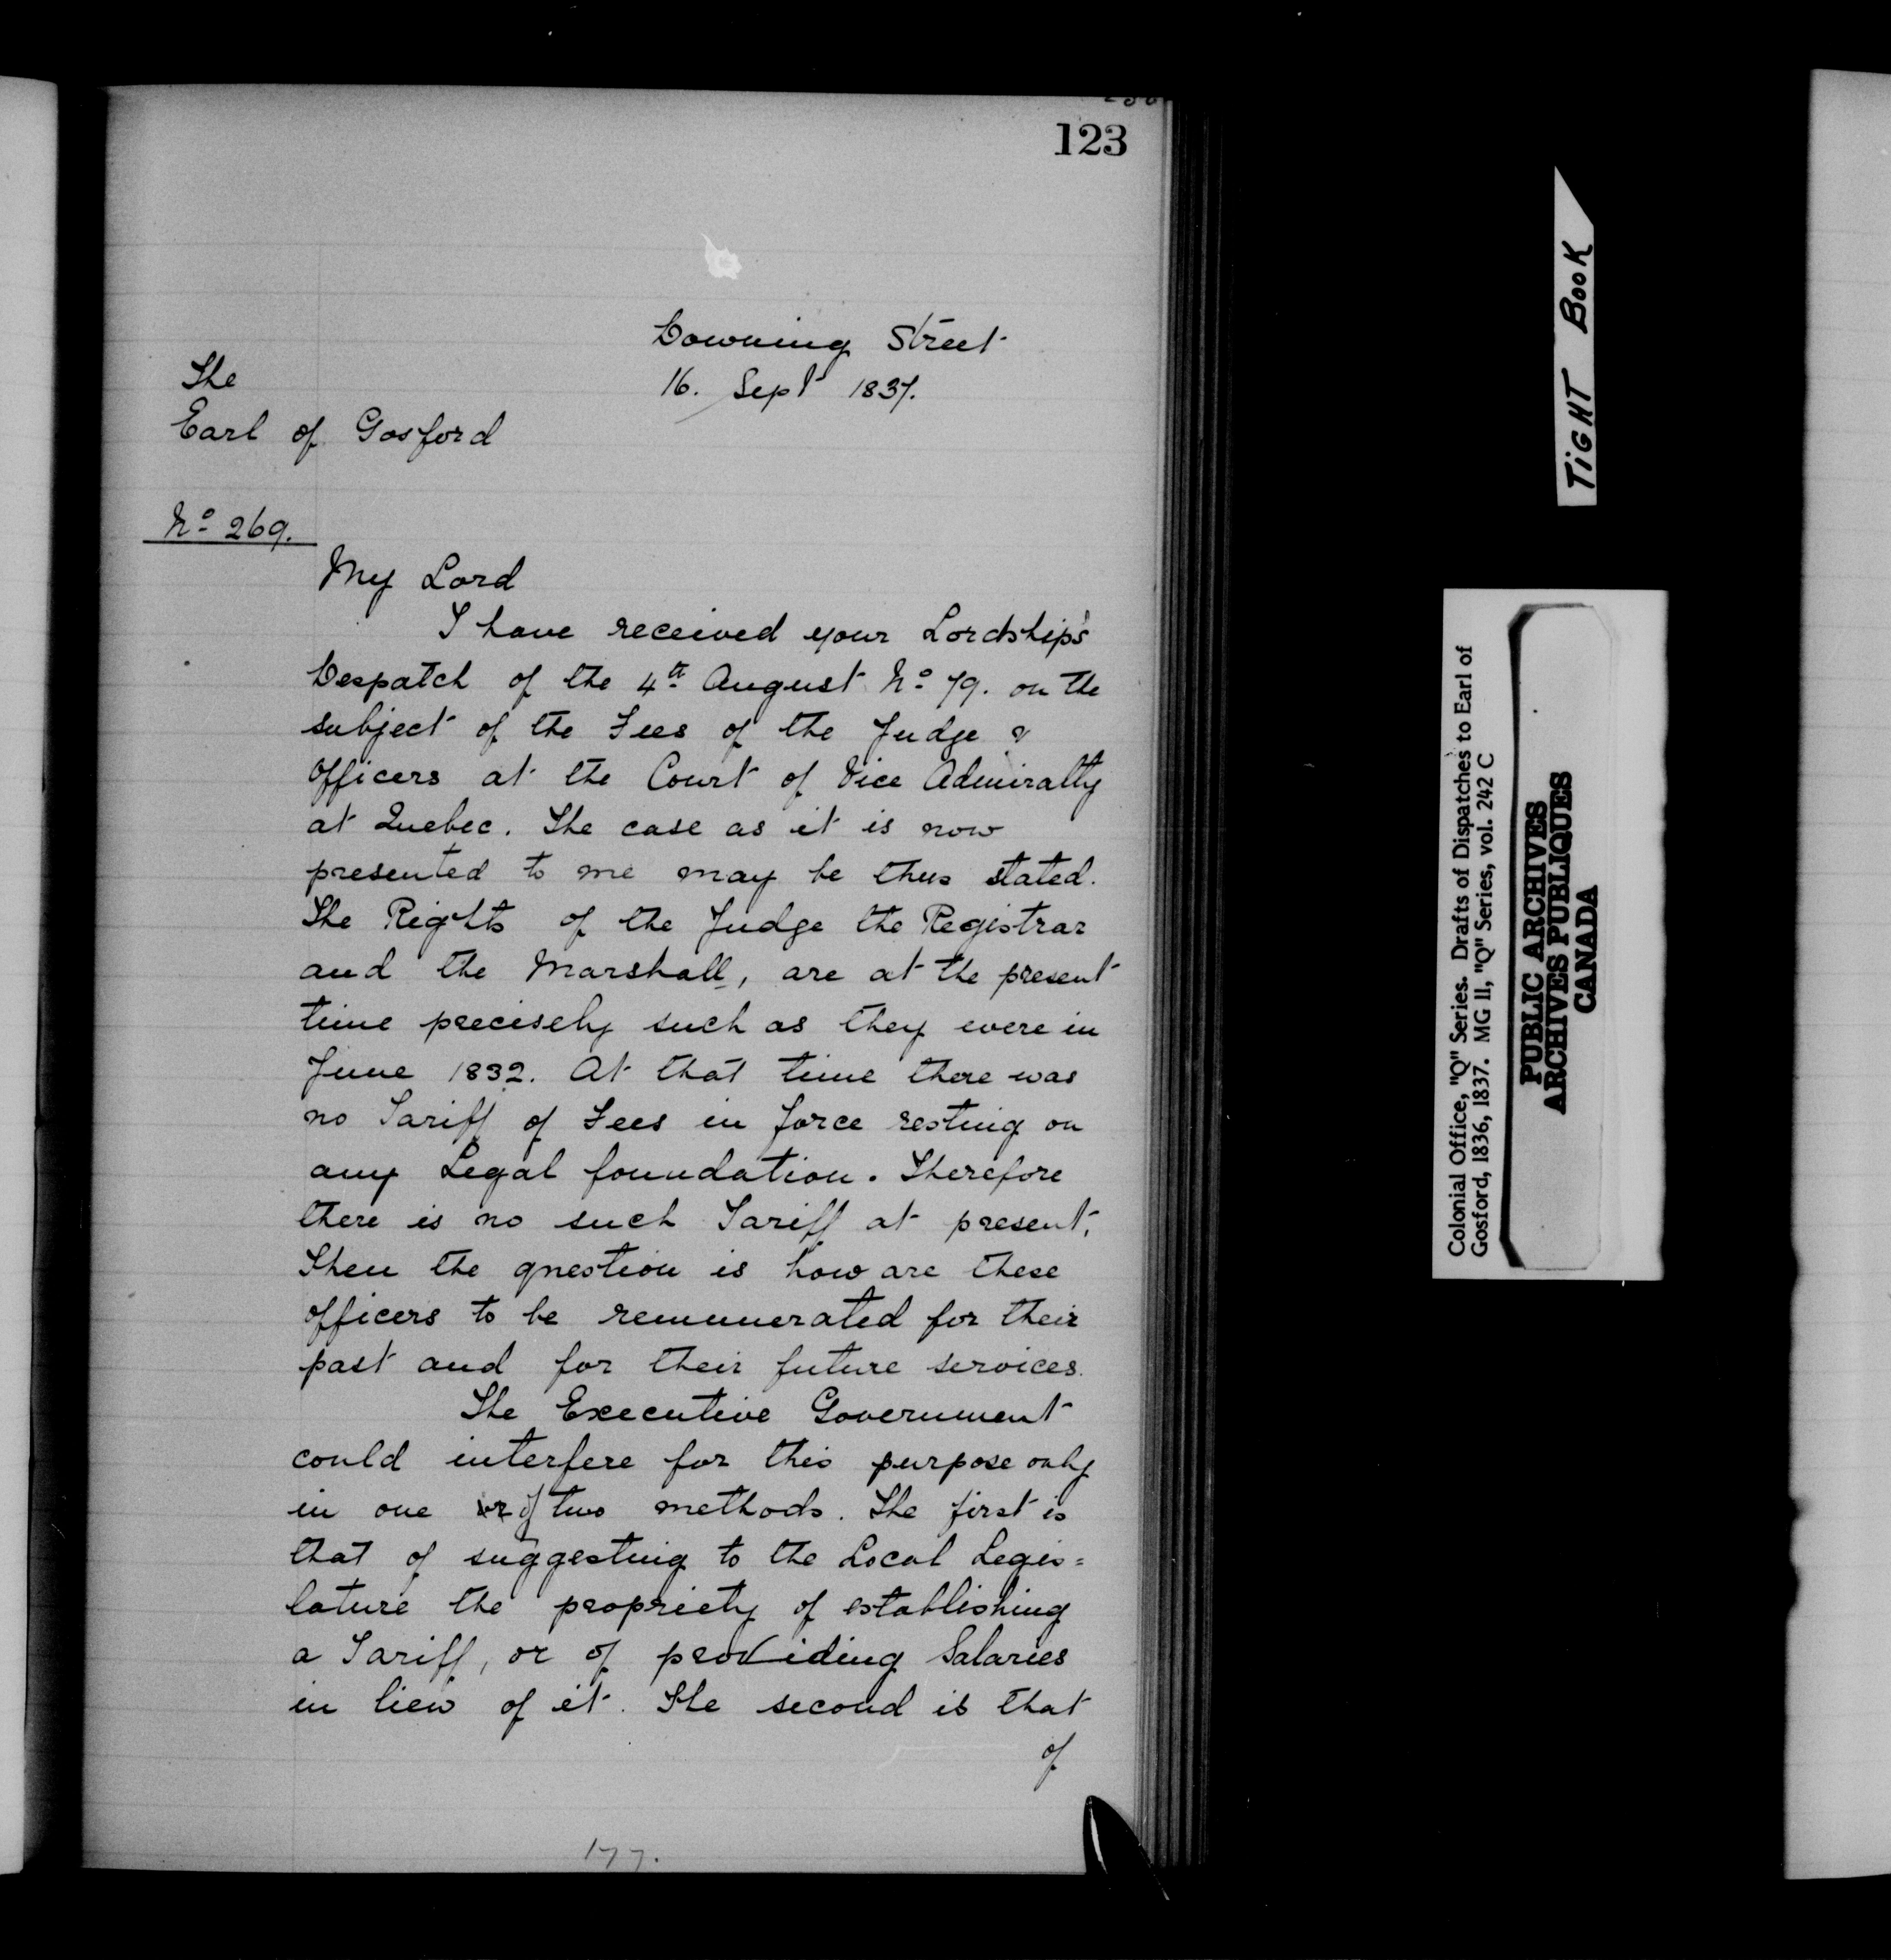 123
Downing Street
16. Sept 1837.
The
Earl of Gosford
No 269.
My Lord
I have received your Lordship's
Despatch of the 4th August No 79. on the
subject of the Fees of the Judge &
Officers at the Court of Vice Admiralty
at Quebec. The case as it is now
presented to me may be thus stated.
The Rights of the Judge the Registrar
and the Marshall, are at the present
time precisely such as they were in
June 1832. At that time there was
no Tariff of Fees in force resting on
any Legal foundation. Therefore
there is no such Tariff at present.
Then the question is how are these
officers to be remunerated for their
past and for their future services.
The Executive Government
could interfere for this purpose only
in one or of two methods. The first is
that of suggesting to the Local Legis=
lature the propriety of establishing
a Tariff, or of providing Salaries
in lieu of it. The second is that
of
177.
TIGHT BOOK
Colonial Office, "Q" Series. Drafts of Dispatches to Earl of
Gosford, 1836, 1837. MG 11, "Q" Series, vol. 242 C
PUBLIC ARCHIVES
ARCHIVES PUBLIQUES
CANADA